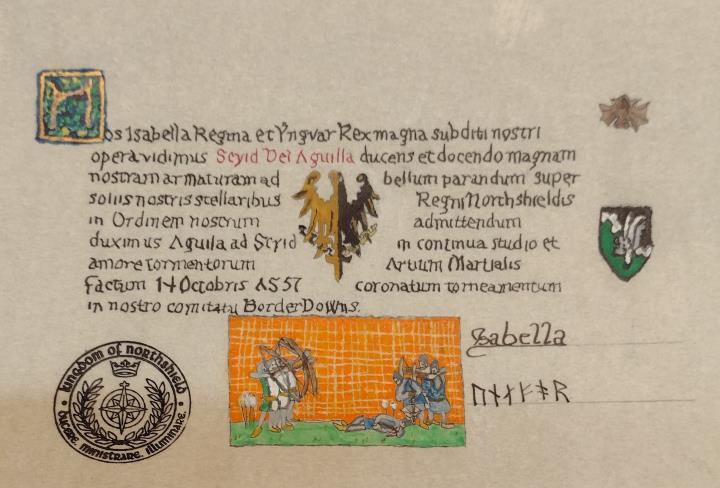 Nos Isabella Regina et Yngvar Rex magna subditi nostri
opera vidimus Scyid Dei Aguilla ducens et docendo magnam
nostram armaturam ad bellum parandum super
soliis nostris stellaribus Regni Northshieldis
in Ordinem nostrum admittendum
duximus Aguila ad Scyid in continua studio et
amore tormentorum Artium Martialis
factum 14 Octobris AS 57 coronatum torneamentum
in nostro comitatu BorderDowns.
Isabella
kingdom of northshield
ducere. ministrare. illuminare.